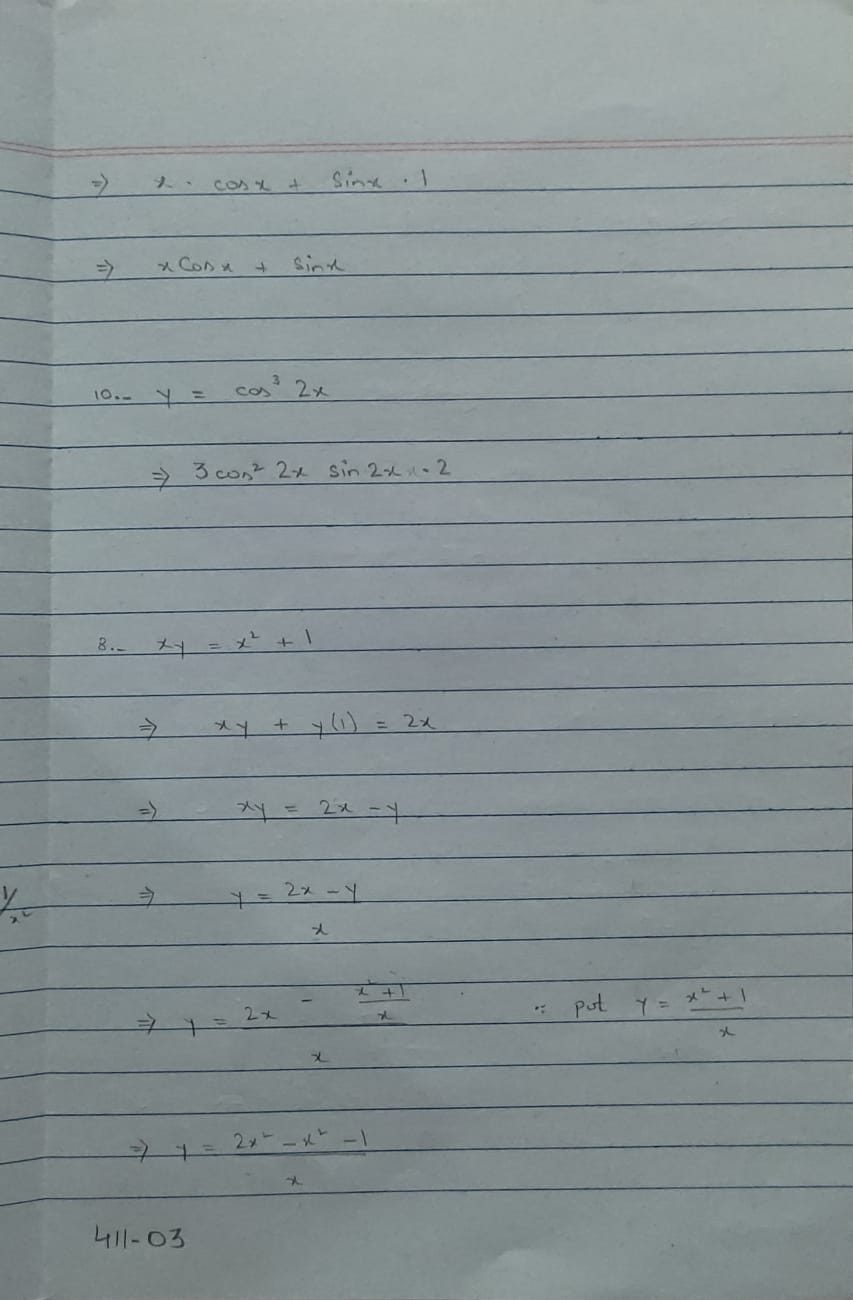 ⇒ x · cosx + Sinx · 1
⇒ xCosx + Sinx
10.- y = cos³ 2x
⇒ 3cos² 2x sin 2x · 2
8.- xy = x² + 1
⇒ xy + y(1) = 2x
⇒ xy = 2x - y
1/x² ⇒ y = (2x - y)/x
⇒ y = (2x - (x²+1)/x)/x ∵ put y = (x²+1)/x
⇒ y = (2x² - x² - 1)/x
411-03